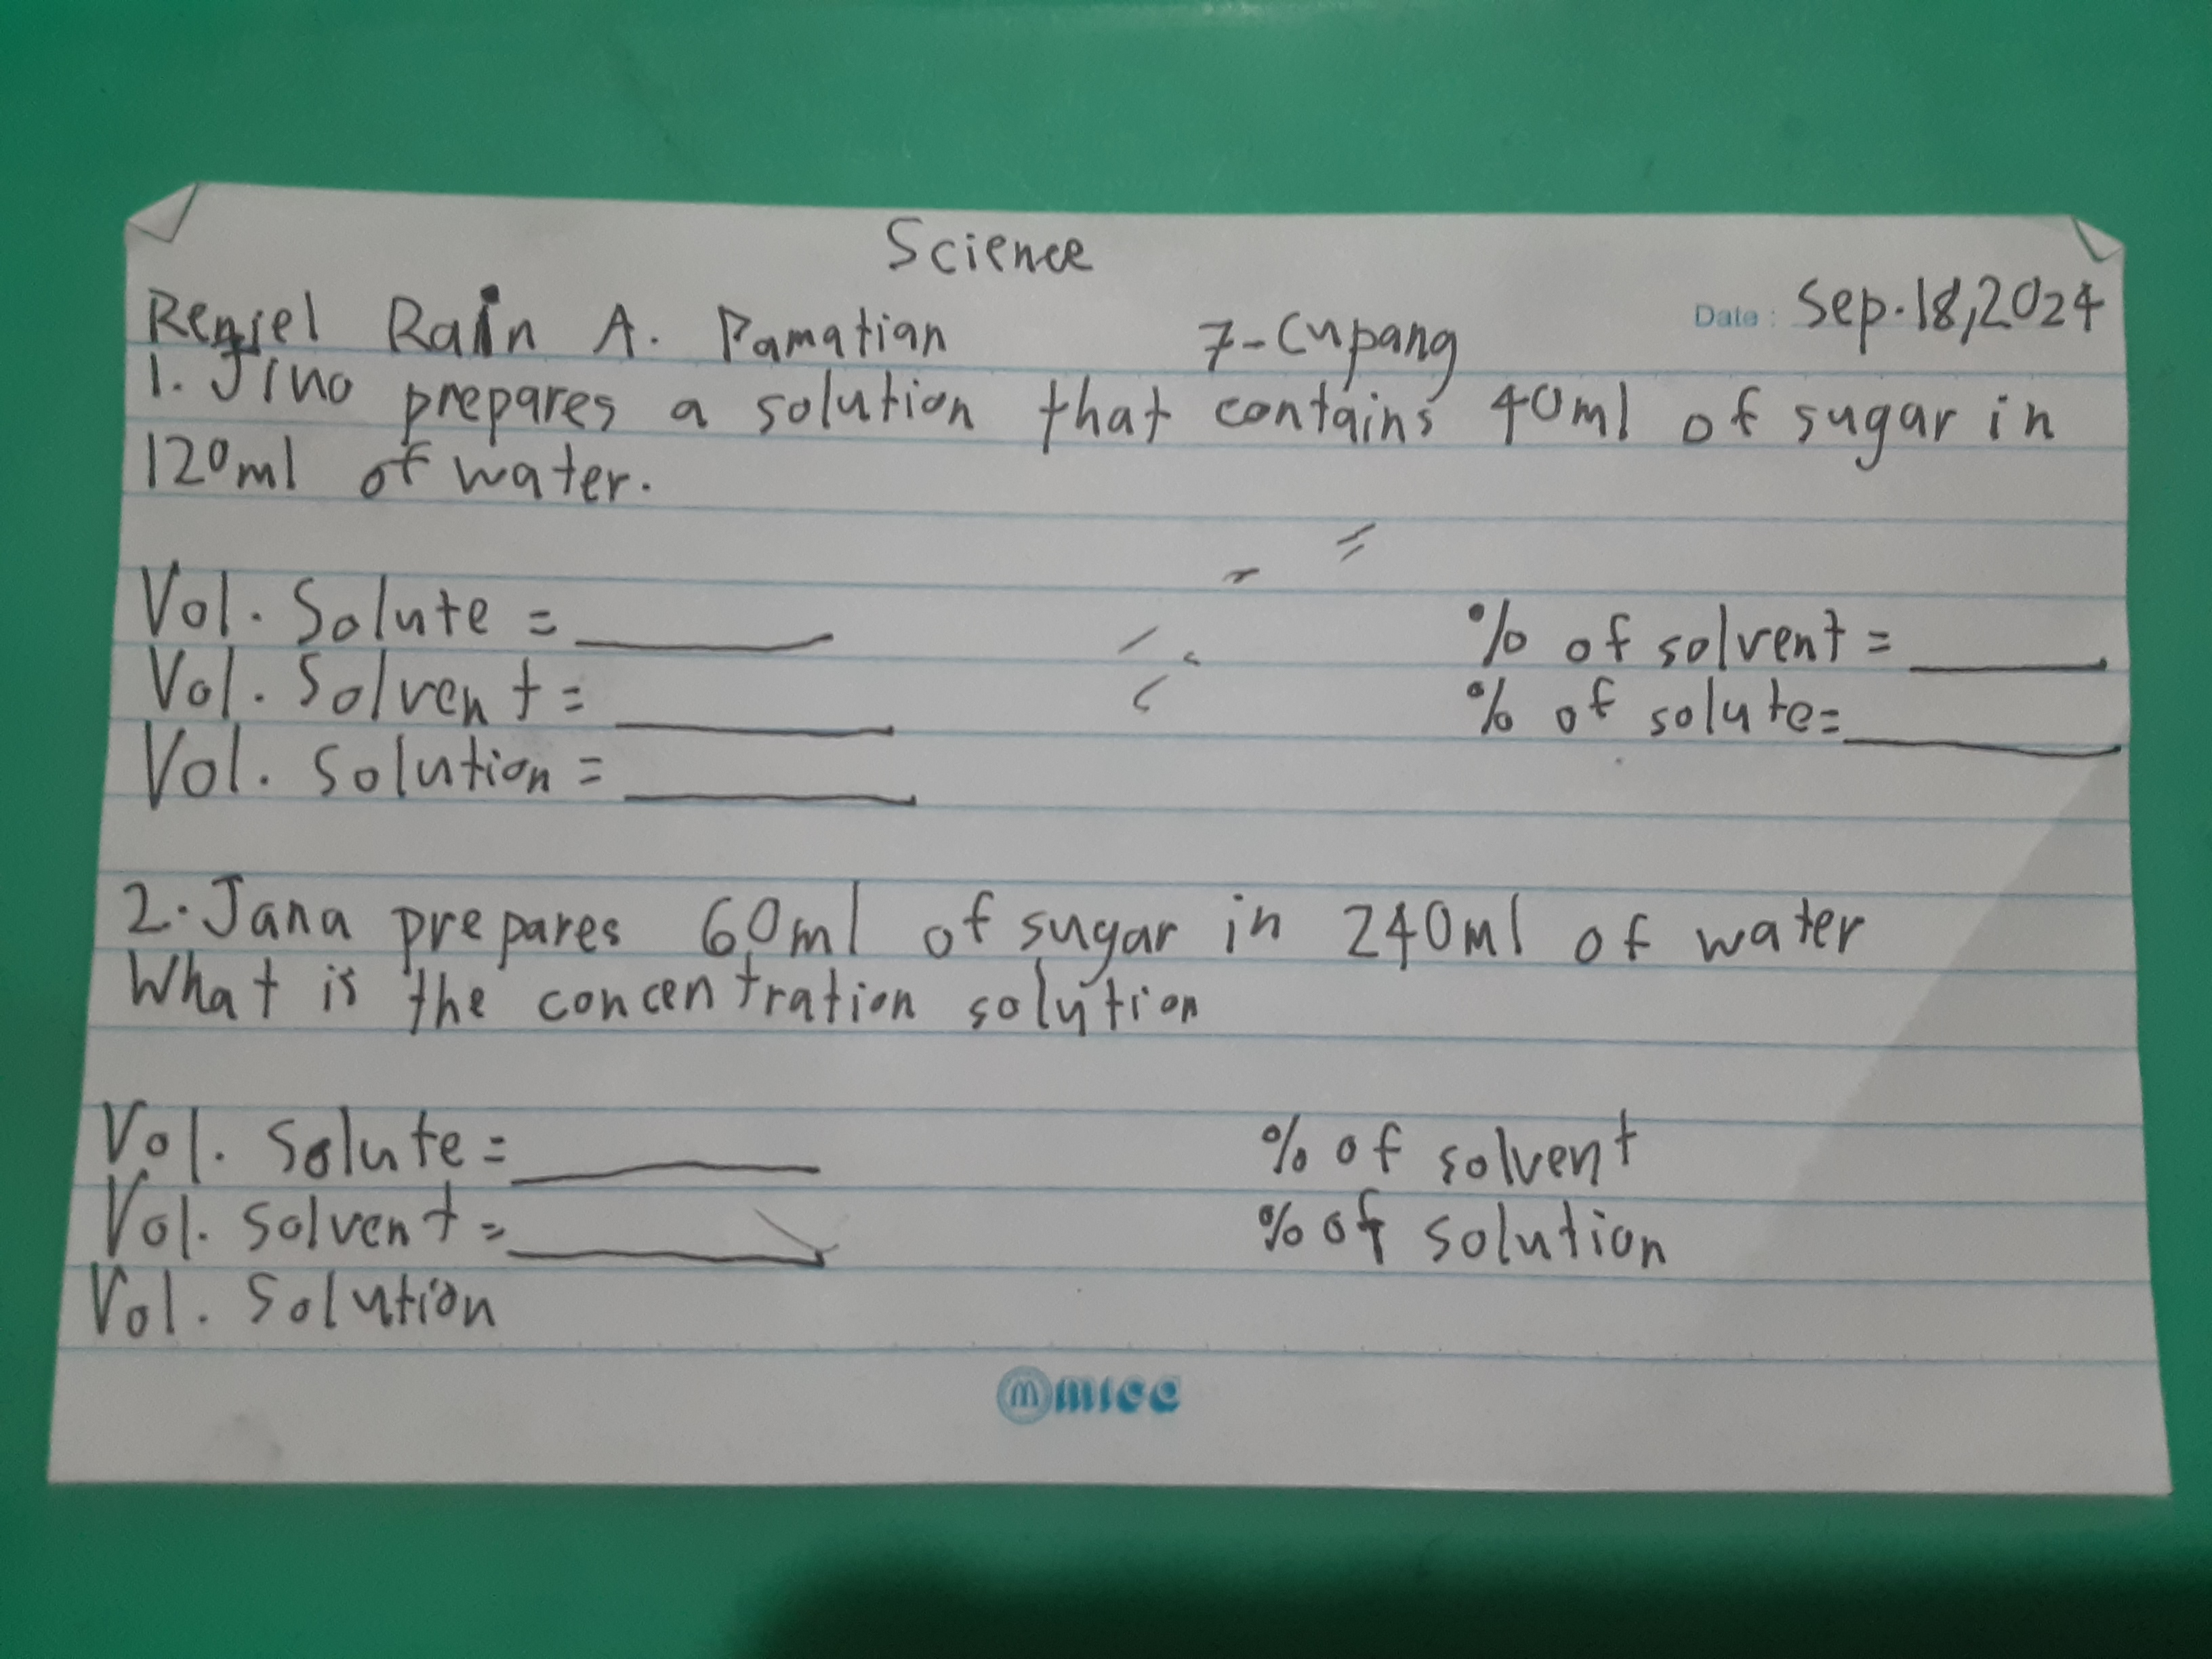 Science
Date: Sep. 18, 2024
Rensiel Rain A. Pamatian 7-Cupang
1. Jino prepares a solution that contains 40ml of sugar in
120ml of water.
Vol. Solute = ______
% of solvent = ______
Vol. Solvent = ______
% of solute = ______
Vol. Solution = ______
2. Jana prepares 60ml of sugar in 240ml of water
What is the concentration solution
Vol. Solute = ______
% of solvent
Vol. Solvent = ______
% of solution
Vol. Solution
micc